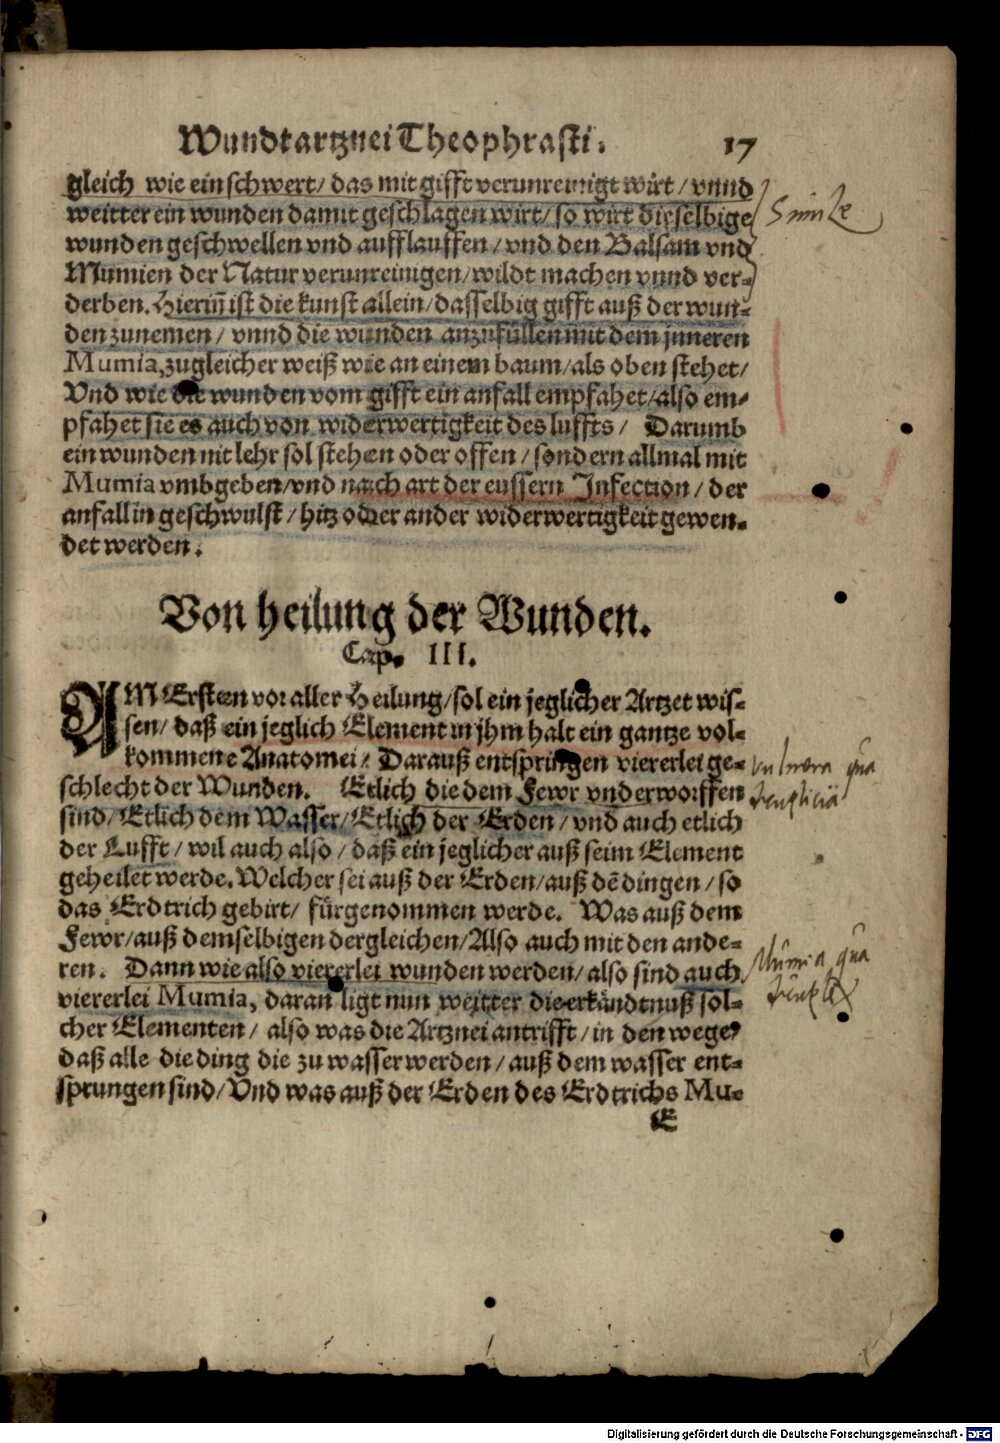 Wundtartznei Theophrasti. 17
gleich wie ein schwert/ das mit gifft verunreinigt wirt/ vnnd
weitter ein wunden damit geschlagen wirt/ so wirt dieselbige
wunden geschwellen vnd aufflauffen/ vnd den Balsam vnd
Mumien der Natur verunreinigen/ wildt machen vnnd ver-
derben. Hierin̄ ist die kunst allein/ dasselbig gifft auß der wun-
den zunemen/ vnnd die wunden anzufüllen mit dem jnneren
Mumia, zu gleicher weiß wie an einem baum/ als oben stehet/
Vnd wie die wunden vom gifft ein anfall empfahet/ also em-
pfahet sie es auch von widerwertigkeit des luffts/ Darumb
ein wunden nit lehr sol stehen oder offen/ sondern allmal mit
Mumia vmbgeben/ vnd nach art der eussern Infection/ der
anfall in geschwulst/ hitz oder ander widerwertigkeit gewen-
det werden.
Von heilung der Wunden.
Cap. III.
AM Ersten vor aller Heilung/ sol ein jeglicher Artzet wis-
sen/ daß ein jeglich Element in jhm halt ein gantze vol-
kommene Anatomei/ Darauß entspringen viererlei ge-
schlecht der Wunden. Etlich die dem Fewr vnderworffen
sind/ Etlich dem Wasser/ Etlich der Erden/ vnd auch etlich
der Lufft/ wil auch also/ daß ein jeglicher auß seim Element
geheilet werde. Welcher sei auß der Erden/ auß dē dingen/ so
das Erdtrich gebirt/ fürgenommen werde. Was auß dem
Fewr/ auß demselbigen dergleichen/ Also auch mit den ande-
ren. Dann wie also viererlei wunden werden/ also sind auch
viererlei Mumia, daran ligt nun weitter die erkändtnuß sol-
cher Elementen/ also was die Artznei antrifft/ in den wege/
daß alle die ding die zu wasser werden/ auß dem wasser ent-
sprungen sind/ Vnd was auß der Erden des Erdtrichs Mu-
E
Simile
Vulnera qua
druplicia
Mumia qua
druplex
Digitalisierung gefördert durch die Deutsche Forschungsgemeinschaft - DFG